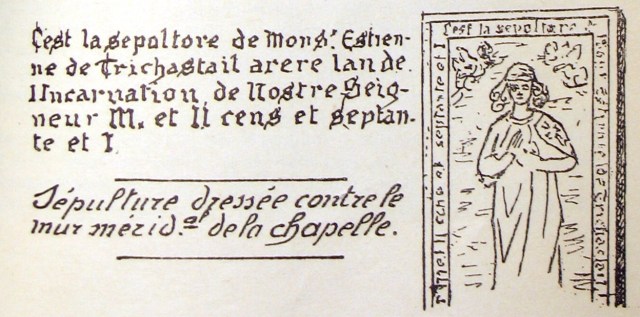 Cest la sepoltore de Mons.r Estien-
ne de Trichastail arere lan de
lIncarnation de Nostre Seig-
neur M. et II cens et septan-
te et I
Sépulture dressée contre le
mur mérid.al de la chapelle.
Cest la sepoltore
II cens et septante et I